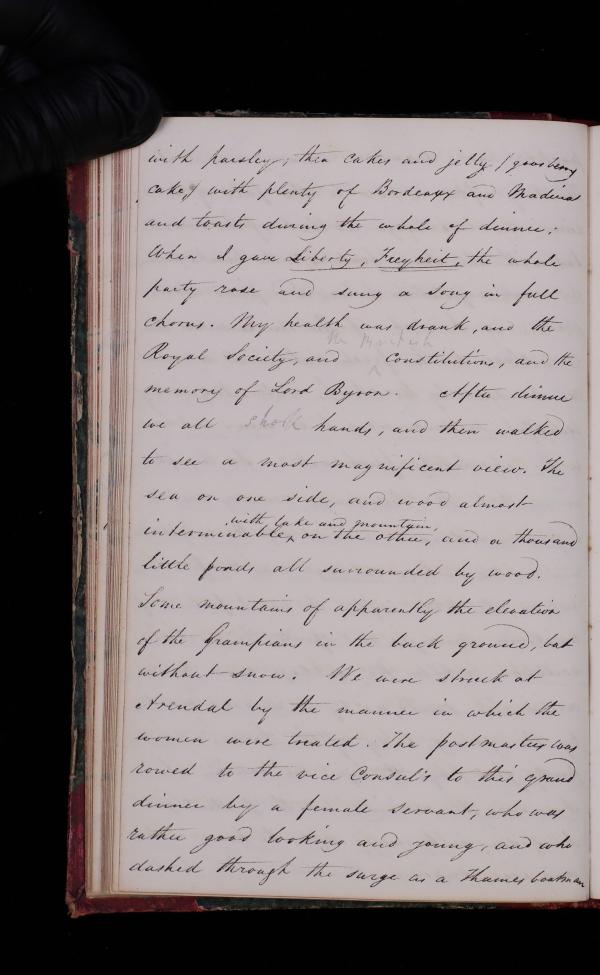 with parsley; then cakes and jelly (goosberry
cakes) with plenty of Bordeaux and Madeira
and toasts during the whole of dinner;
When I gave Liberty, Freyheit, the whole
party rose and sung a song in full
chorus. My health was drank, and the
the British
Royal Society, and ^ Constitutions, and the
memory of Lord Byron. After dinner
we all shook hands, and then walked
to see a most magnificent view. The
sea on one side, and wood almost
with lake and mountain,
interminable, ^ on the other, and a thousand
little ponds all surrounded by wood.
Some mountains of apparently the elevation
of the Grampians in the back ground, but
without snow. We were struck at
Arendal by the manner in which the
women were treated. The postmaster was
rowed to the vice Consul's to this grand
dinner by a female servant, who was
rather good looking and young, and who
dashed through the surge as a Thames boatman